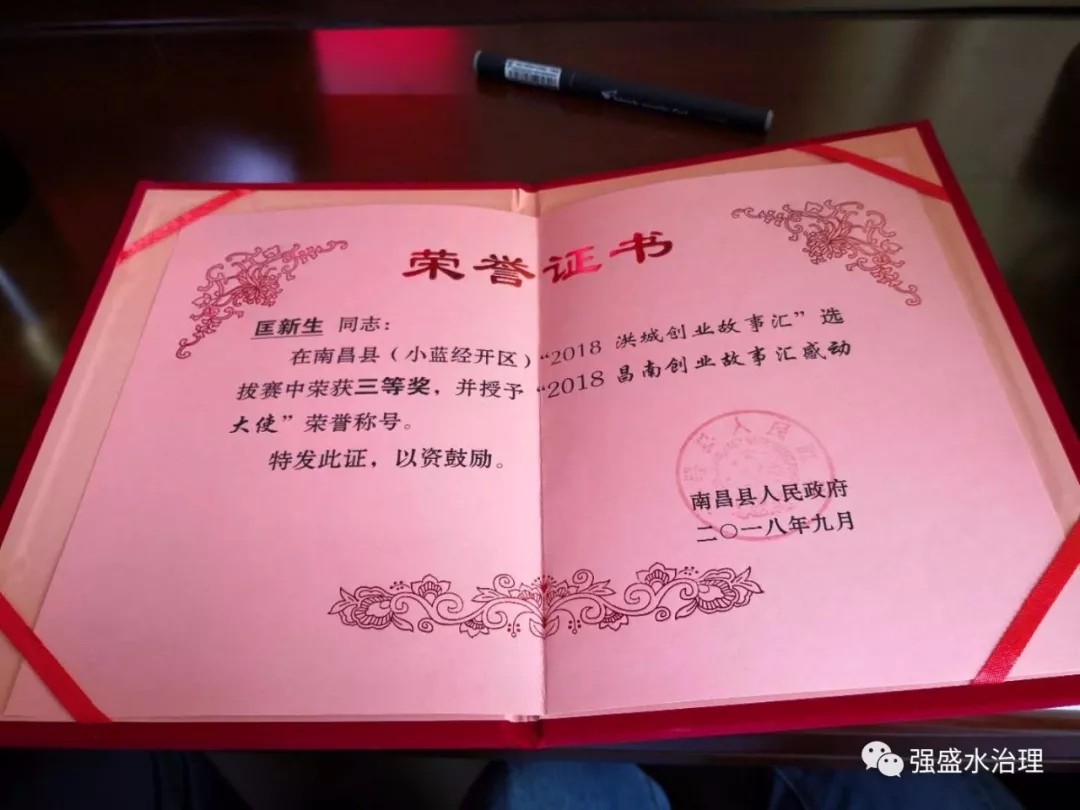 荣誉证书
匡新生 同志：
在南昌县（小蓝经开区）“2018 洪城创业故事汇”选
拔赛中荣获三等奖，并授予“2018 昌南创业故事汇感动
大使”荣誉称号。
特发此证，以资鼓励。
南昌县人民政府
二〇一八年九月
强盛水治理